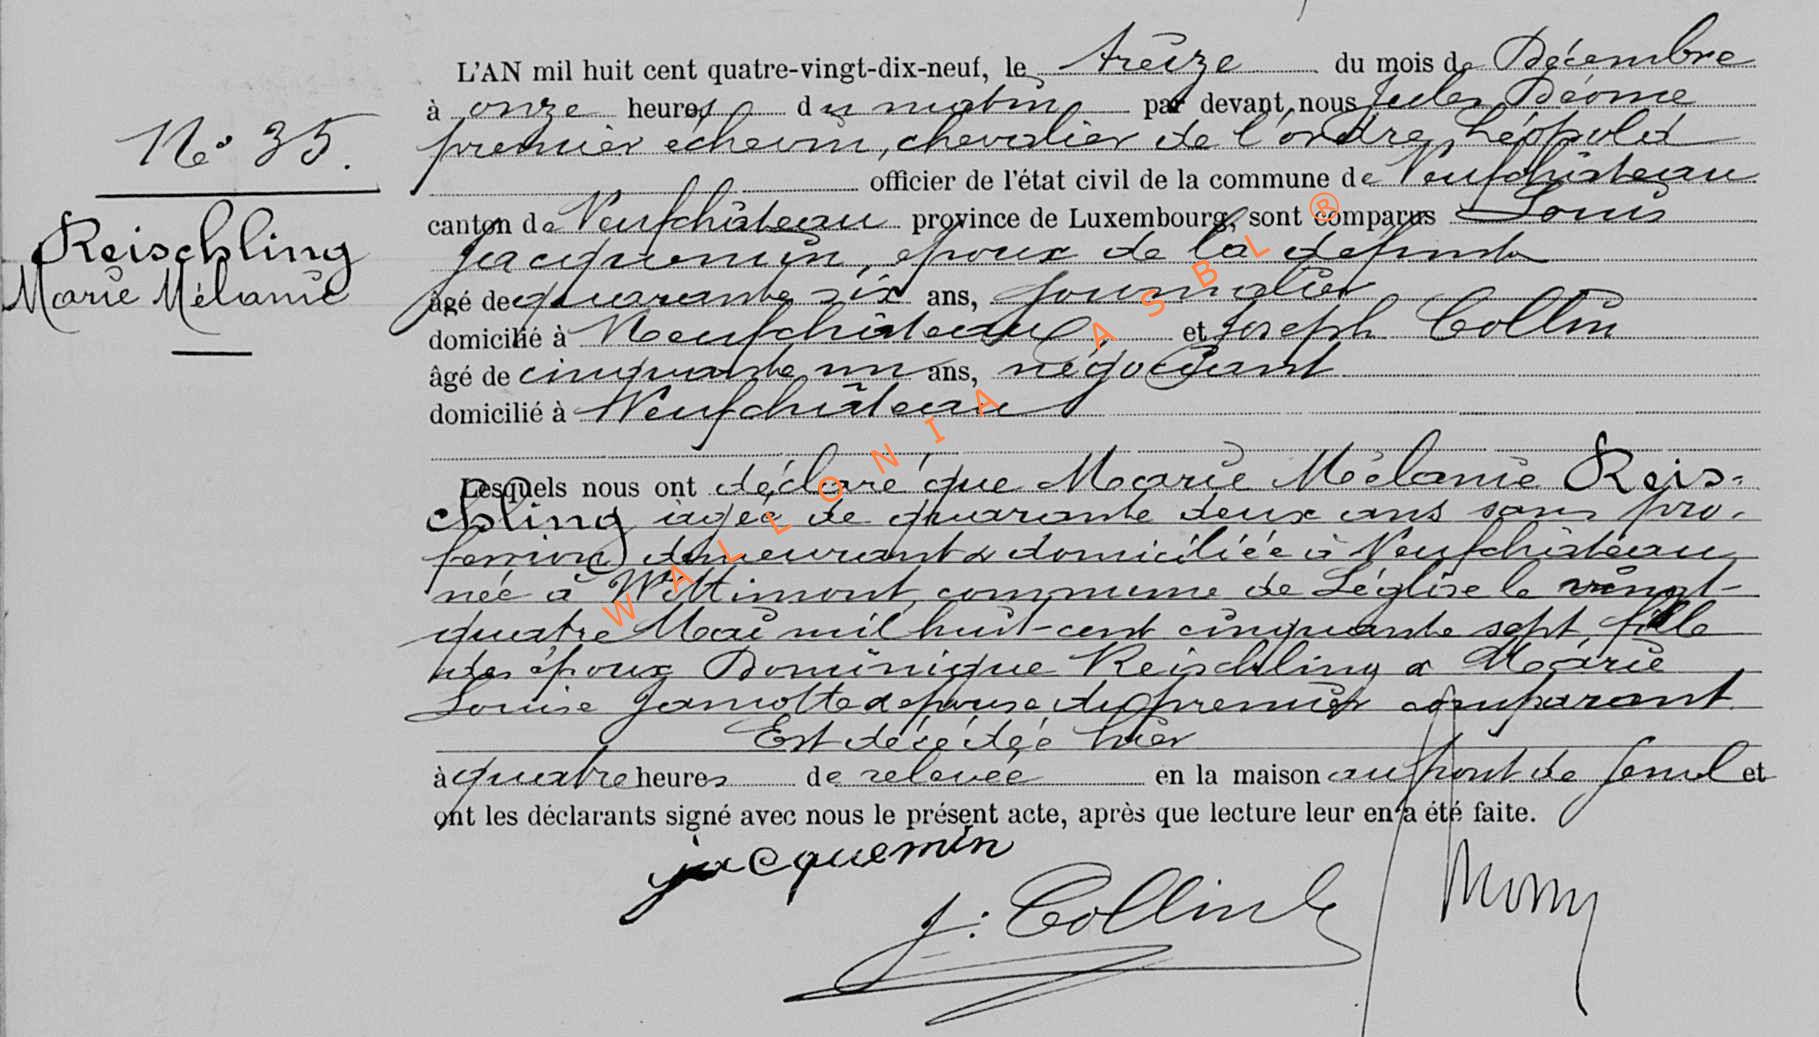 L'AN mil huit cent quatre-vingt-dix-neuf, le treize du mois de Décembre
à onze heures du matin par devant nous Jules
premier échevin, chevalier de l'ordre Léopold
officier de l'état civil de la commune de Neufchâteau
canton de Neufchâteau province de Luxembourg, sont comparus Louis
Jacquemin, époux de la défunte
âgé de quarante six ans, journalier
domicilié à Neufchâteau, et Joseph Collin
âgé de cinquante un ans, négociant
domicilié à Neufchâteau
Lesquels nous ont déclaré que Marie Mélanie Reis-
chling âgée de quarante deux ans sans pro-
fession, demeurant & domiciliée à Neufchâteau
née à Wittimont commune de Léglise le vingt-
quatre Mai mil huit-cent cinquante sept, fille
des époux Dominique Reischling & Marie
Louise Jamotte & épouse du premier comparant.
Est décédée hier
à quatre heures de relevée en la maison au pont de et
ont les déclarants signé avec nous le présent acte, après que lecture leur en a été faite.
jacquemin
J. Collin
No 35.
Reischling
Marie Mélanie
WALLONIA ASBL ®